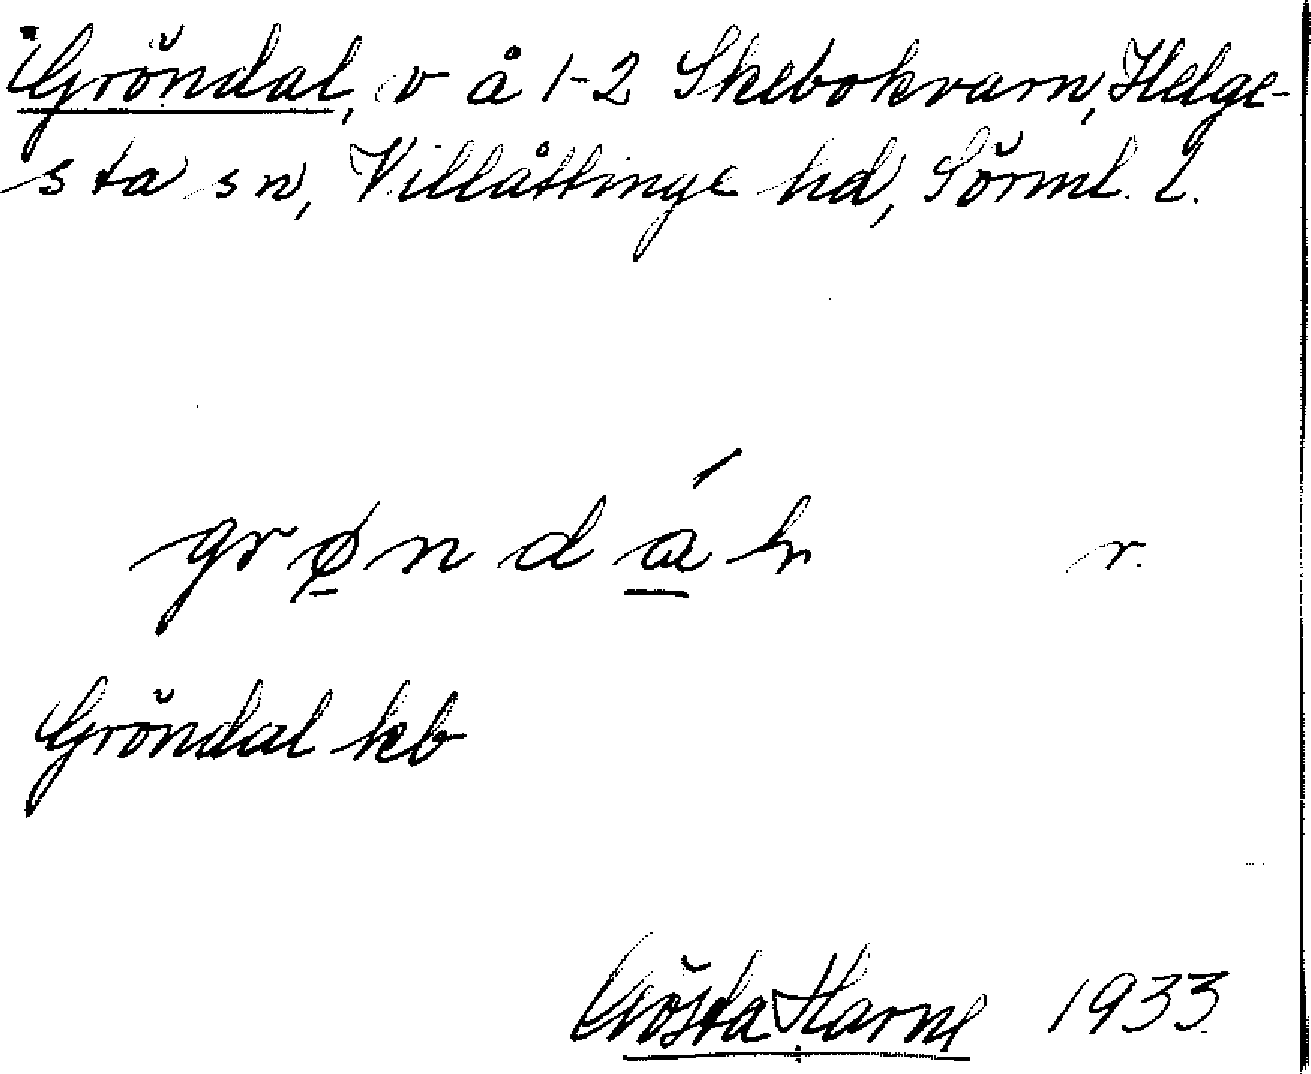 Gröndal, v å 1-2 Skebokvarn, Helge-
sta sn, Villåttinge hd, Sörml. l.
grøndá r.
Gröndal kb
Gösta Harne 1933